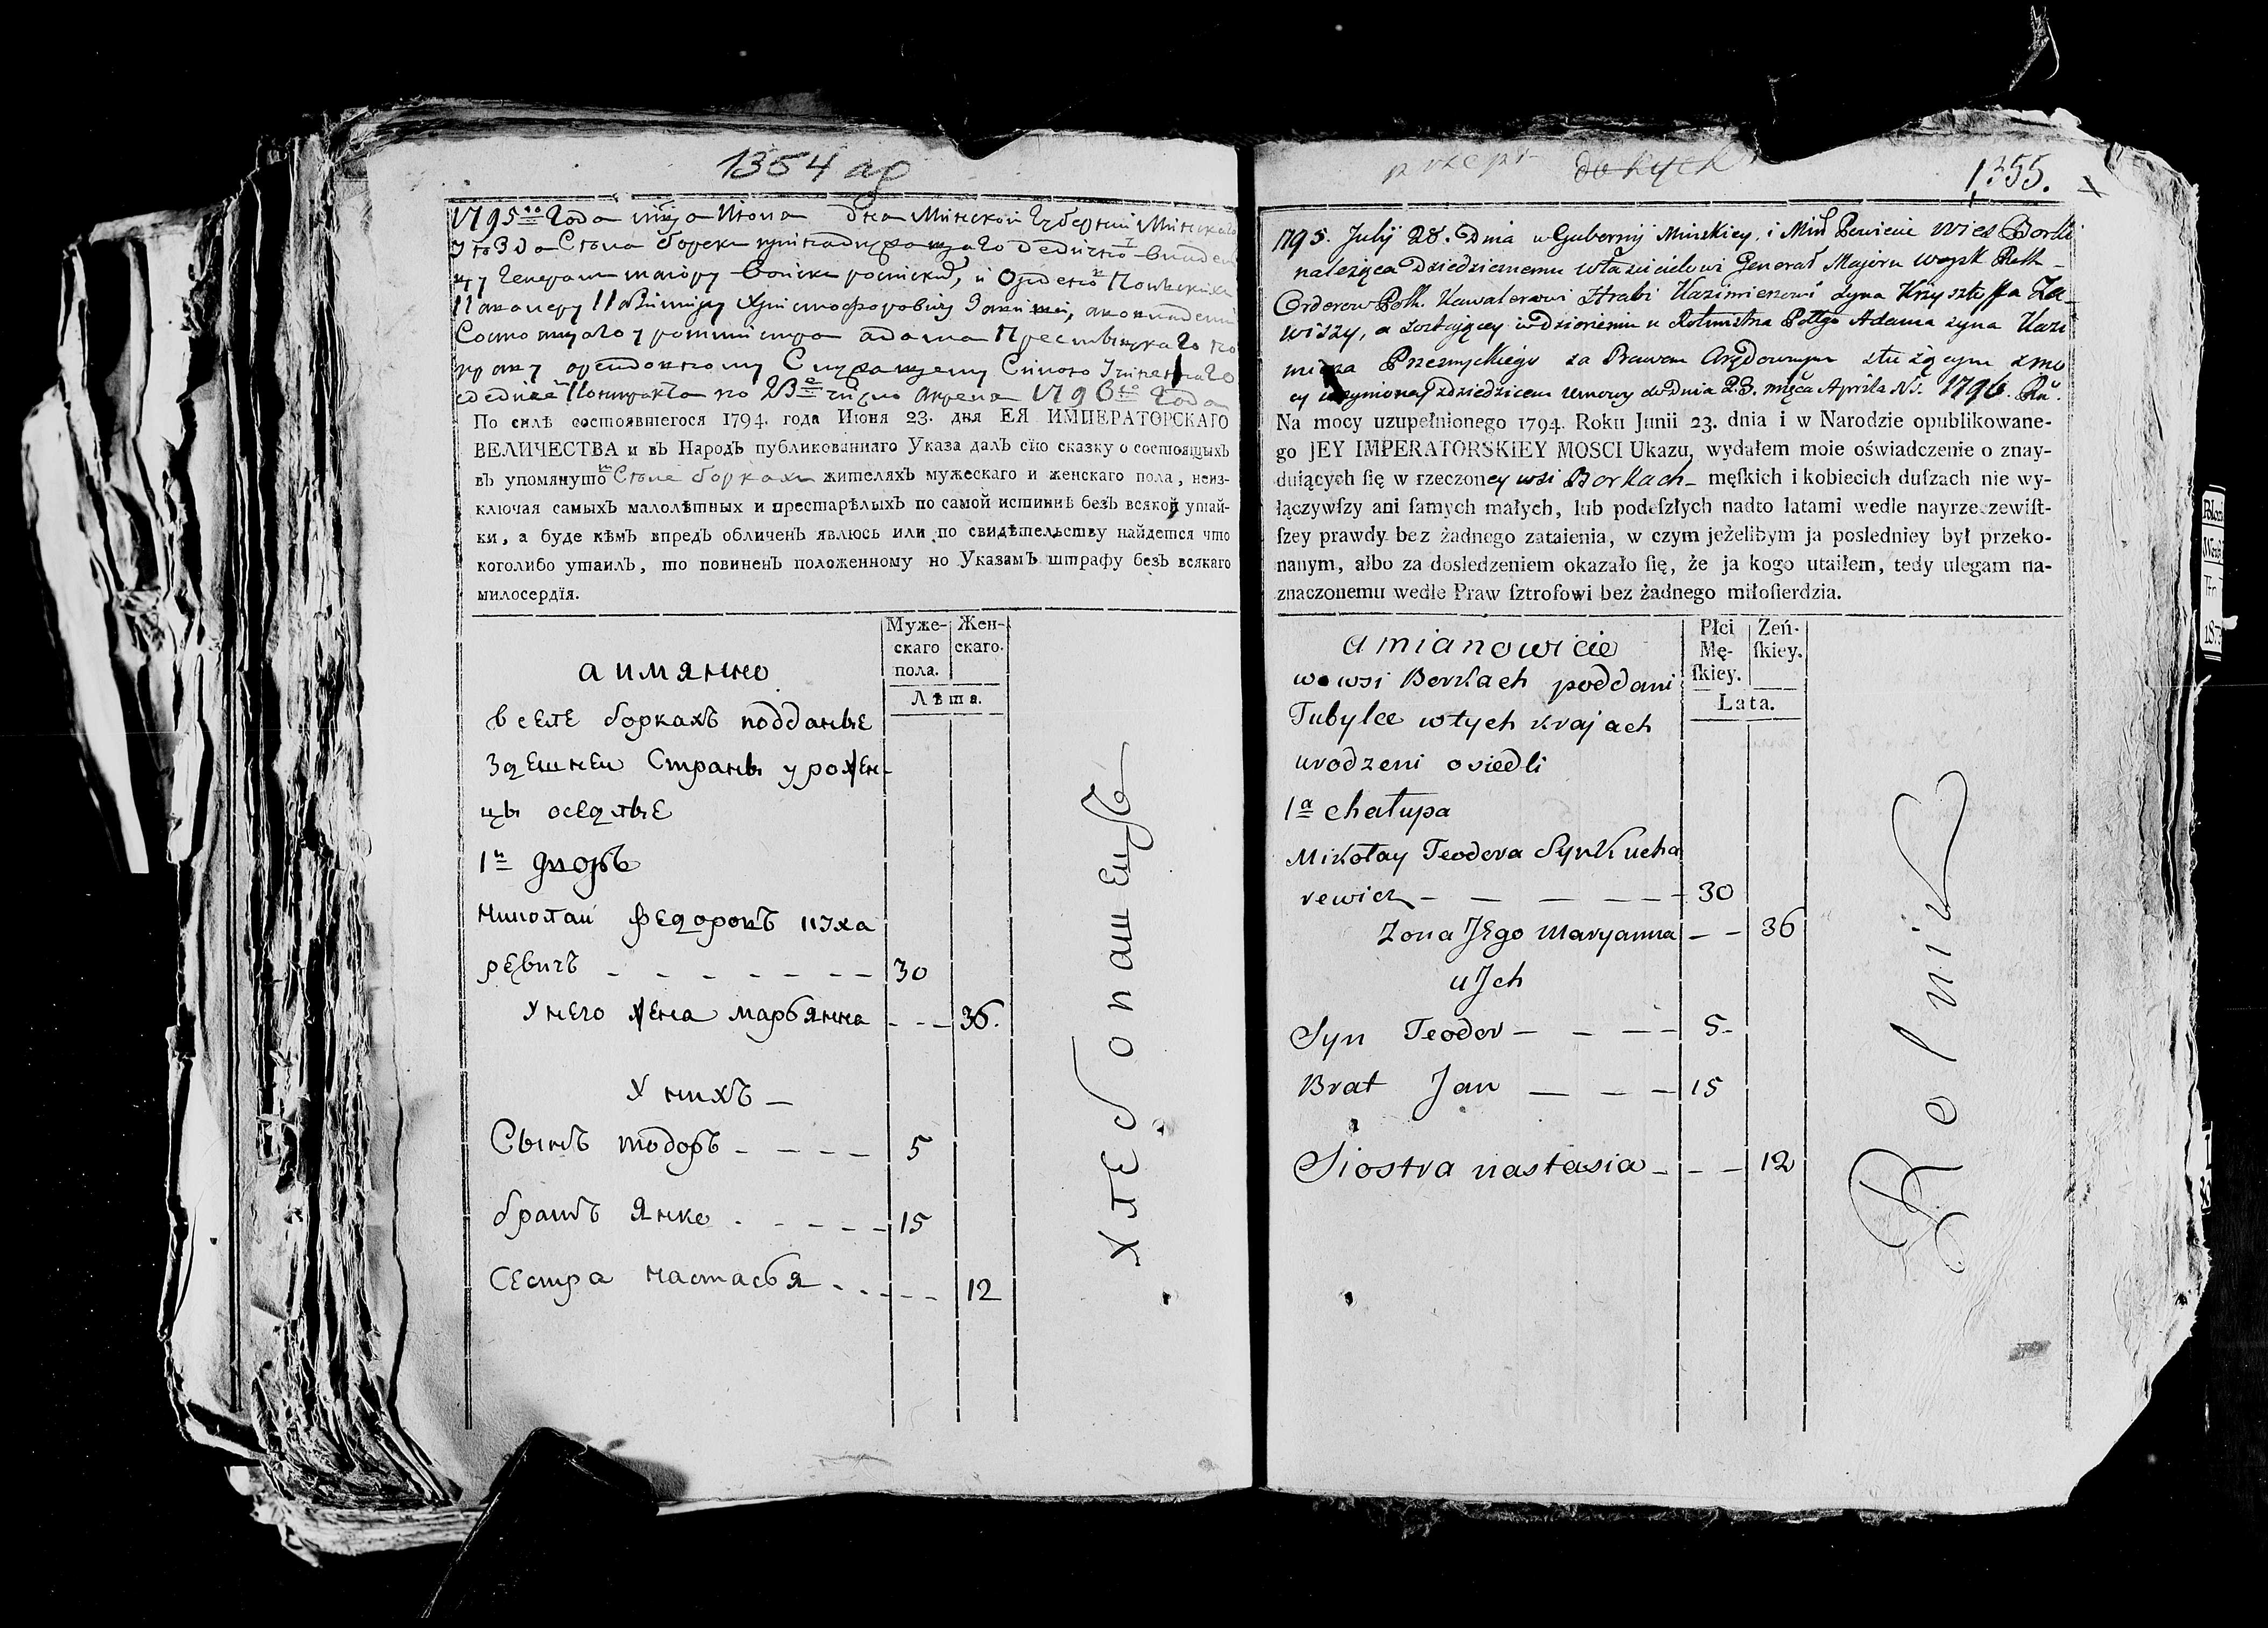 1354 ар
1795го Года мца Июля дня Минской Губернїи Минскаго
Села борки принадлежащаго
Генералъ маіору войскъ и Ордено Польскихъ
Христофоровичу
Состоящаго у ротмистра адама
праву арендовному
Контракта по 23е число Апреля 1796го Года
По силѣ состоявшегося 1794. года Июня 23. дня ЕЯ ИМПЕРАТОРСКАГО
ВЕЛИЧЕСТВА и въ Народъ публикованнаго Указа далъ сїю сказку о состоящыхъ
въ упомянуто Селе боркахъ жителяхъ мужескаго и женскаго пола, неиз-
ключая самыхъ малолѣтныхъ и престарѣлыхъ по самой истиннѣ безъ всякой утай-
ки, а буде кѣмъ впредъ обличенъ явлюсь или по свидѣтельству найдется что
коголибо утаилъ, то повиненъ положенному по Указамъ штрафу безъ всякаго
милосердїя.
Муже-
скаго
пола.
Жен-
скаго.
Лѣта.
а имянно
в селе боркахъ подданые
здешнеи Страны урожен-
цы оседлые
1й дворъ
николаи федоровъ куха
ревичъ - - - - - - - 30
У него жена марьянна - - - 36.
У нихъ —
Сынъ тодоръ - - - - 5
братъ янко - - - - - 15
Сестра настасья - - - - - 12
хлебопашецъ
do tych
1355.
1795. Julij 28. Dnia w Gubernij Minskiey, i Min Powiecie Wies Borki
należąca Dziedzicznemu właścicielowi Generał Majoru woysk Polk
Orderow Polk. Kawalerowi Hrabi Kazimierzowi syna Krzysztofa Za-
wiszy, a zostającey w dzierżeniu u Rotmistrza Polkgo Adama syna Kazi
mierza Przesmyckiego za Prawem Arędownym służącym z mo
cy uczynioney z dziedzicem umowy do Dnia 23. mięca Aprila N.S. 1796. Ru.
Na mocy uzupełnionego 1794. Roku Junii 23. dnia i w Narodzie opublikowane-
go JEY IMPERATORSKIEY MOSCI Ukazu, wydałem moie oświadczenie o znay-
duiących ſię w rzeczoney wsi Borkach męſkich i kobiecich duſzach nie wy-
łączywſzy ani ſamych małych, lub podeſzłych nadto latami wedle nayrzeczewiſt-
ſzey prawdy bez żadnego zataienia, w czym jeżelibym ja posledniey był przeko-
nanym, albo za dosledzeniem okazało ſię, że ja kogo utaiłem, tedy ulegam na-
znaczonemu wedle Praw ſztrofowi bez żadnego miłoſierdzia.
Płci
Mę-
ſkiey.
Zeń-
ſkiey.
Lata.
a mianowicie
we wsi Borkach poddani
Tubylce w tych krajach
urodzeni osiedli
1a chałupa
Mikołay Teodora Syn Kucha
rewicz — — — — — — 30
Zona Jego Maryanna — — 36
u Jch
Syn Teodor — — — 5-
Brat Jan — — — 15
Siostra nastasia - - - 12
Rolnik